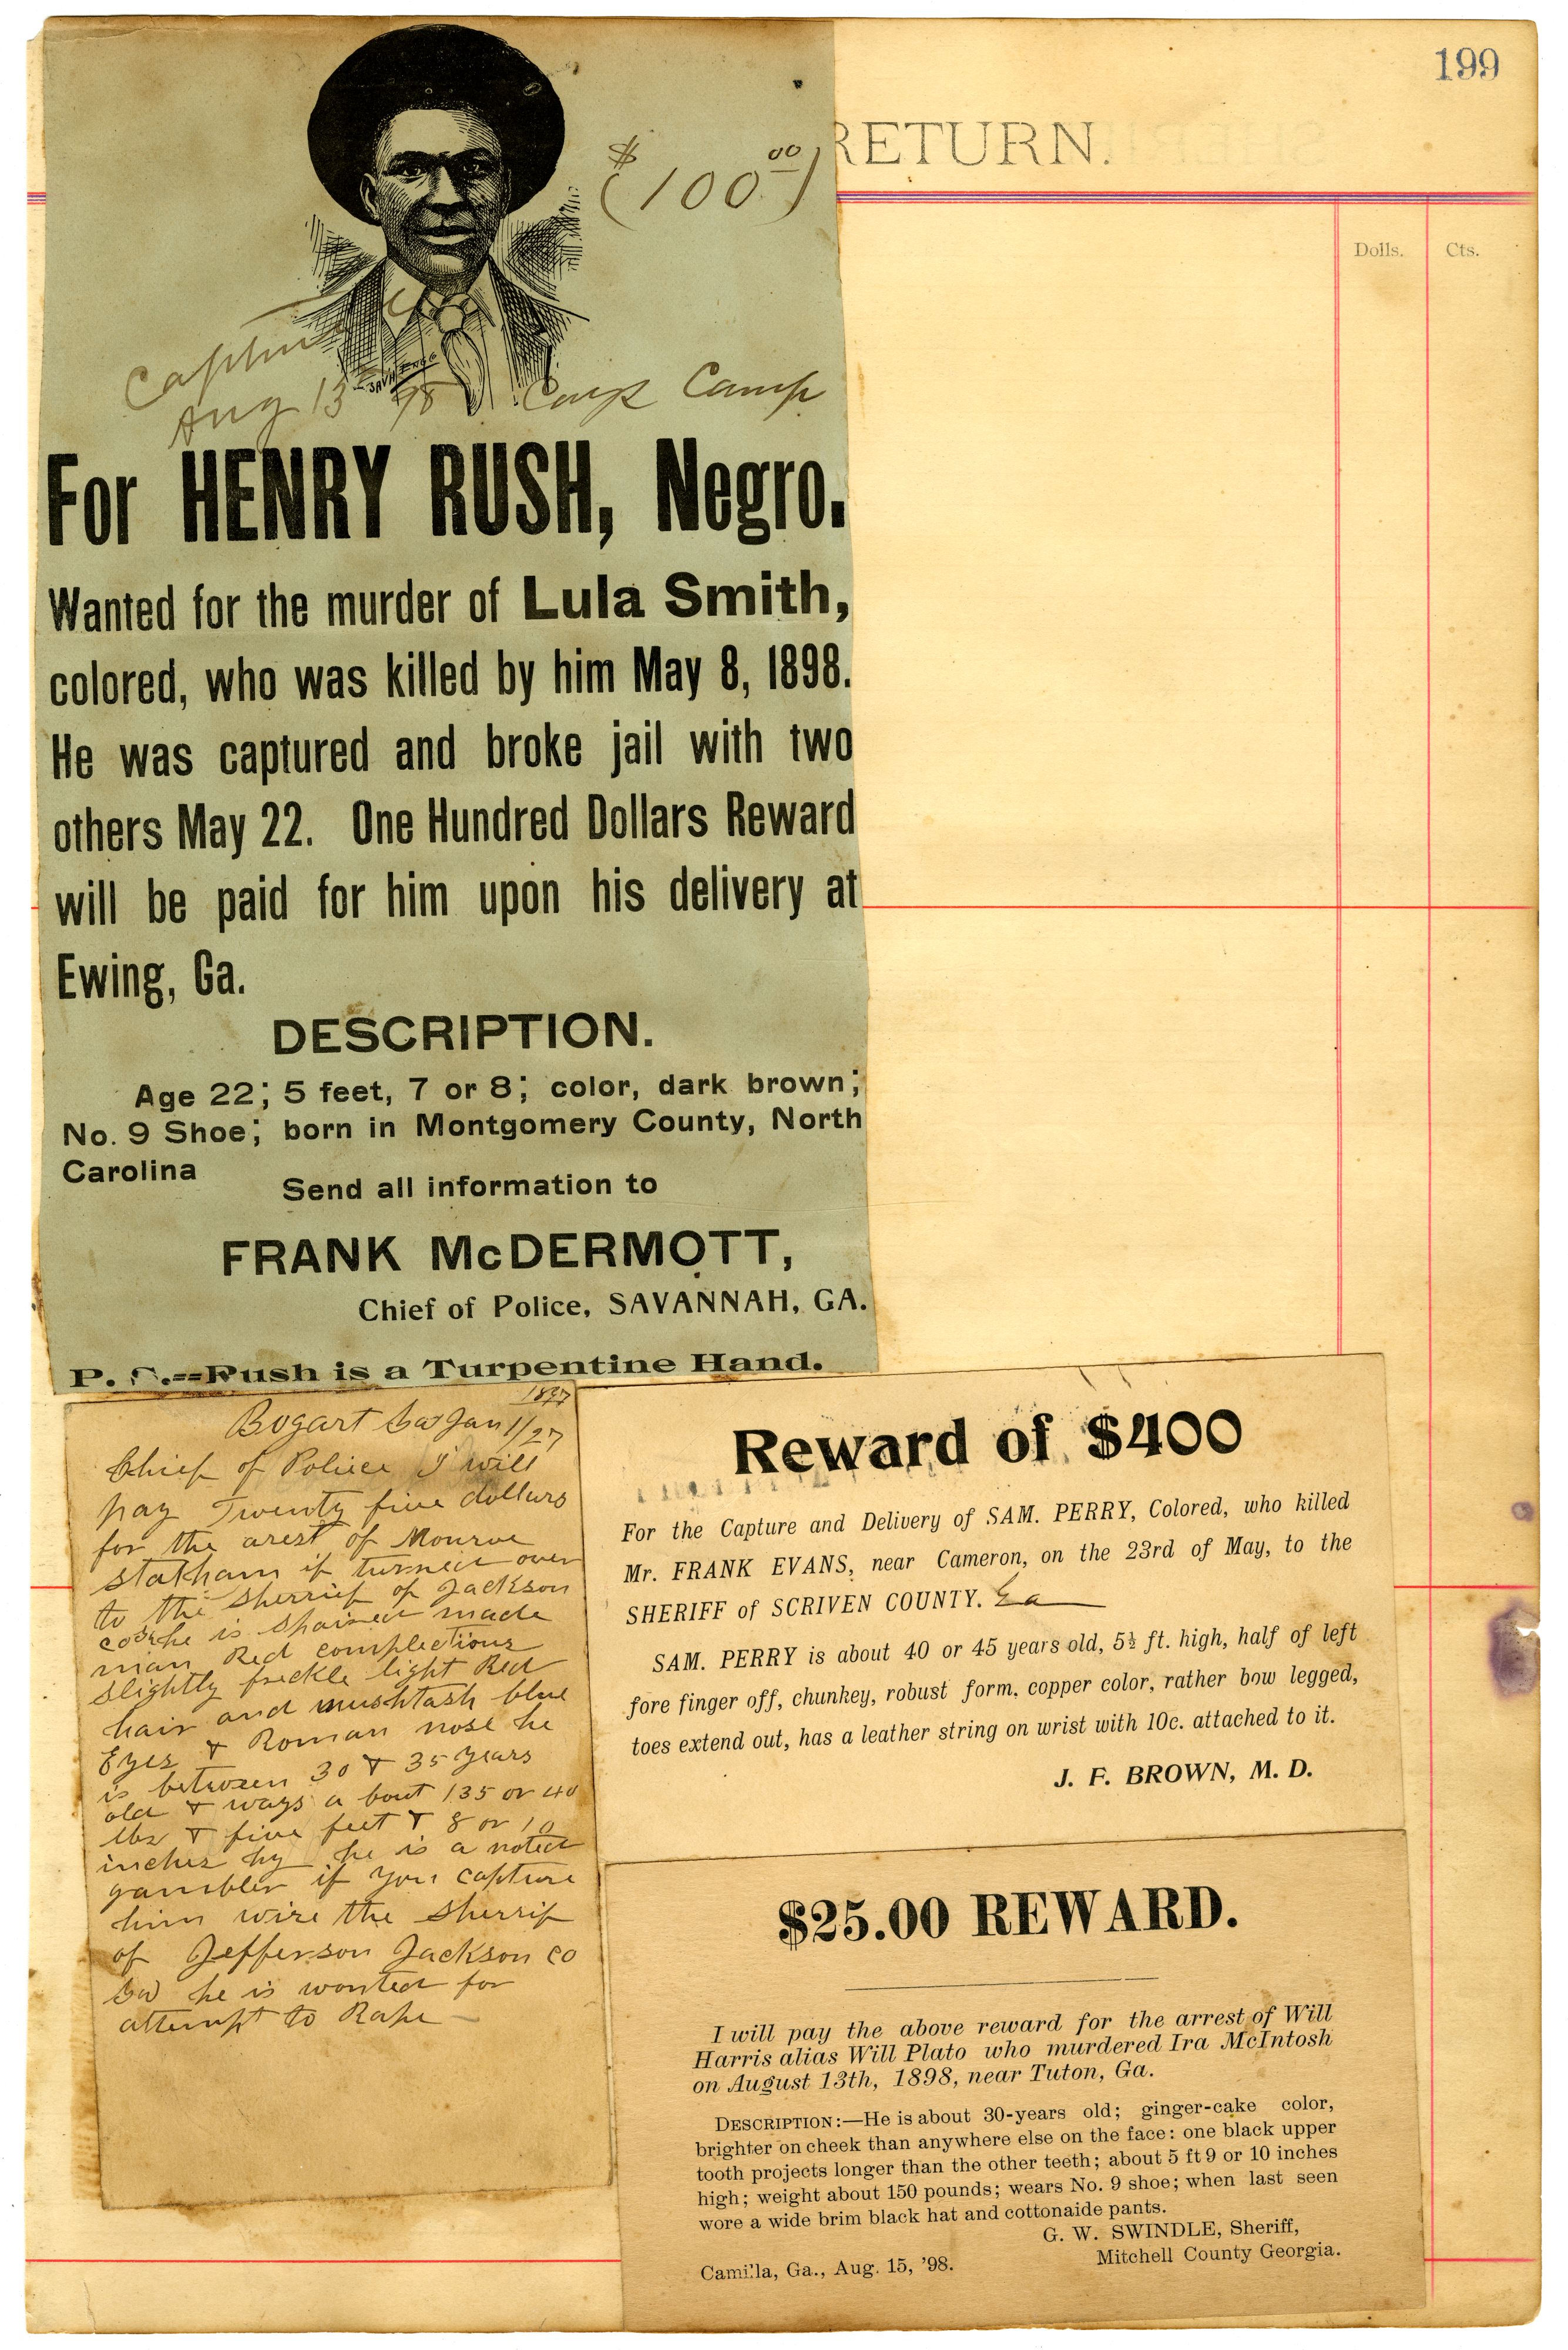 199
RETURN.
Dolls. Cts.
$
(100 00)
Aug 13 98 Camp
For HENRY RUSH, Negro.
Wanted for the murder of Lula Smith,
colored, who was killed by him May 8, 1898.
He was captured and broke jail with two
others May 22. One Hundred Dollars Reward
will be paid for him upon his delivery at
Ewing, Ga.
DESCRIPTION.
Age 22; 5 feet, 7 or 8; color, dark brown;
No. 9 Shoe; born in Montgomery County, North
Carolina
Send all information to
FRANK McDERMOTT,
Chief of Police, SAVANNAH, GA.
P. S.--Rush is a Turpentine Hand.
1897
Bogart Ga Jan 1/27
Chief of Police I will
pay Twenty five dollars
for the arest of Monroe
Statham if turned over
to the Sherrif of Jackson
co he is Spained made
man Red complections
slightly freckle light Red
hair and mushtash blue
Eyes & Roman nose he
is between 30 & 35 years
old & ways a bout 135 or 40
lbs & five feet & 8 or 10
inches hy he is a noted
gambler if you capture
him wire the Sherrif
of Jefferson Jackson co
Ga he is wonted for
attempt to Rape
Reward of $400
For the Capture and Delivery of SAM. PERRY, Colored, who killed
Mr. FRANK EVANS, near Cameron, on the 23rd of May, to the
SHERIFF of SCRIVEN COUNTY. Ga
SAM. PERRY is about 40 or 45 years old, 5½ ft. high, half of left
fore finger off, chunkey, robust form, copper color, rather bow legged,
toes extend out, has a leather string on wrist with 10c. attached to it.
J. F. BROWN, M. D.
$25.00 REWARD.
I will pay the above reward for the arrest of Will
Harris alias Will Plato who murdered Ira McIntosh
on August 13th, 1898, near Tuton, Ga.
DESCRIPTION:—He is about 30-years old; ginger-cake color,
brighter on cheek than anywhere else on the face: one black upper
tooth projects longer than the other teeth; about 5 ft 9 or 10 inches
high; weight about 150 pounds; wears No. 9 shoe; when last seen
wore a wide brim black hat and cottonaide pants.
G. W. SWINDLE, Sheriff,
Mitchell County Georgia.
Camilla, Ga., Aug. 15, '98.